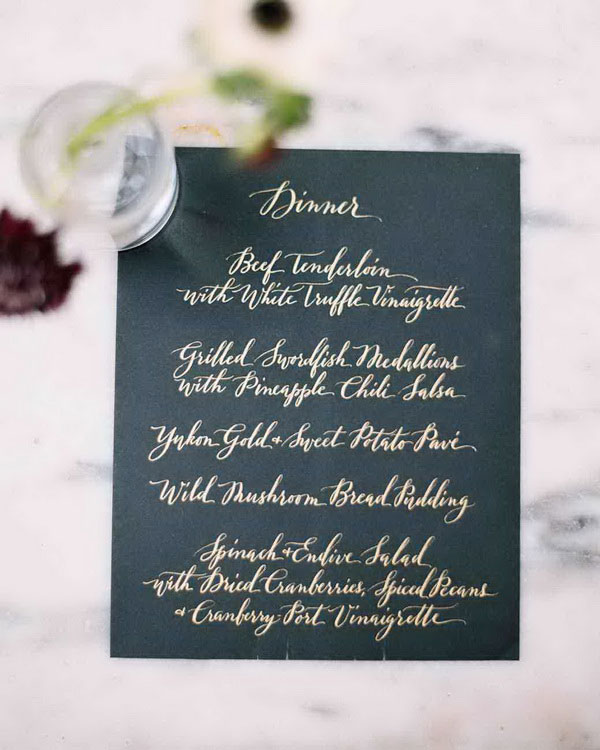 Dinner
Beef Tenderloin
with White Truffle Vinaigrette
Grilled Swordfish Medallions
with Pineapple Chili Salsa
Yukon Gold + Sweet Potato Pavé
Wild Mushroom Bread Pudding
Spinach + Endive Salad
with Dried Cranberries, Spiced Pecans
+ Cranberry Port Vinaigrette